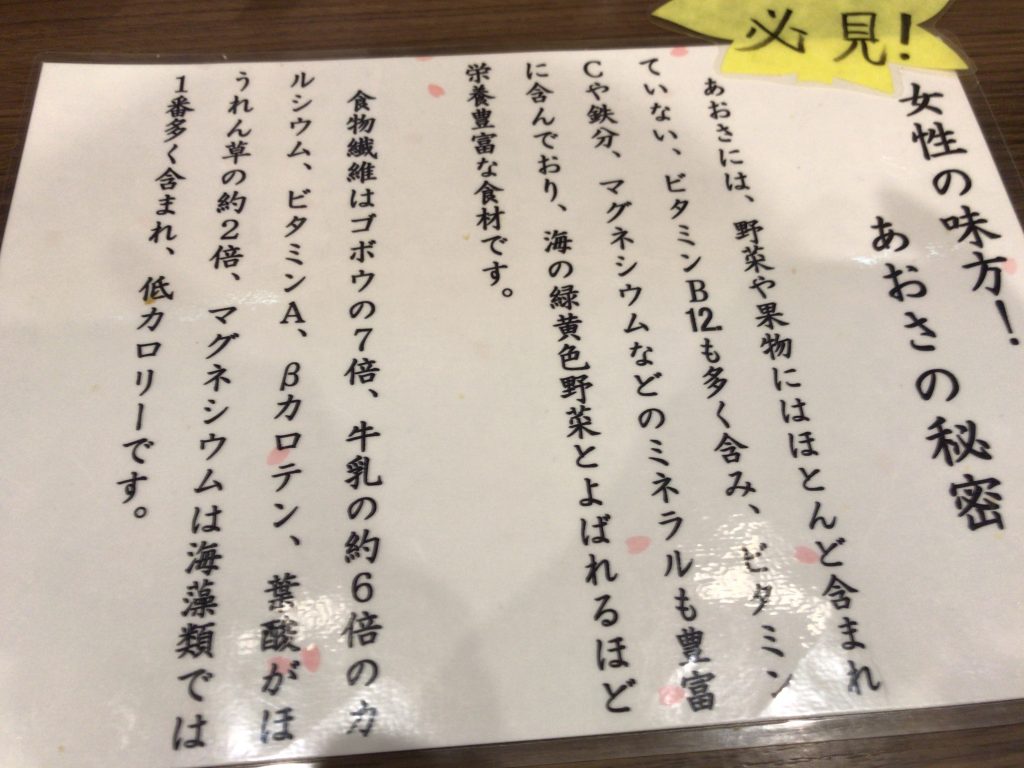 必見!
女性の味方!
あおさの秘密
あおさには、野菜や果物にはほとんど含まれ
ていない、ビタミンB12も多く含み、ビタミン
Cや鉄分、マグネシウムなどのミネラルも豊富
に含んでおり、海の緑黄色野菜とよばれるほど
栄養豊富な食材です。
食物繊維はゴボウの7倍、牛乳の約6倍のカ
ルシウム、ビタミンA、βカロテン、葉酸がほ
うれん草の約2倍、マグネシウムは海藻類では
1番多く含まれ、低カロリーです。